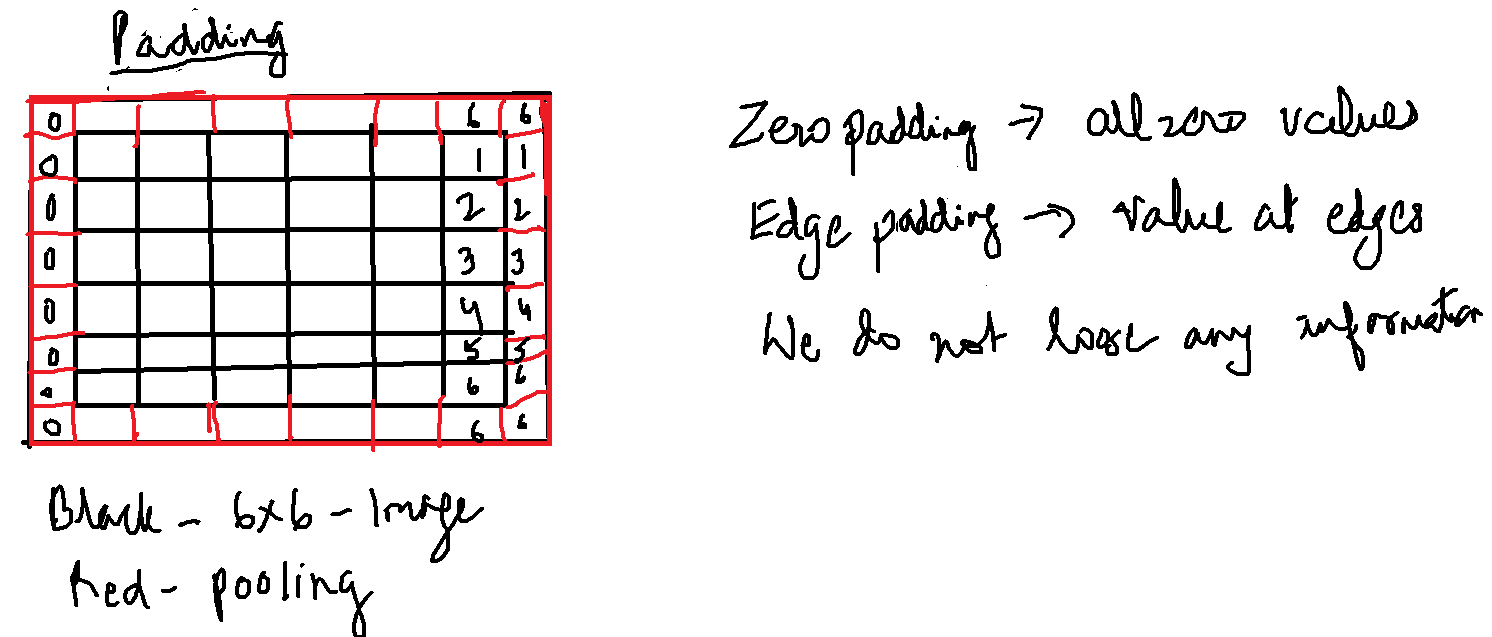 Padding
0 6 6
0 1 1
0 2 2
0 3 3
0 4 4
0 5 5
0 6 6
0 6 6
Black - 6x6 - Image
Red - pooling
Zero padding → all zero values
Edge padding → value at edges
We do not loose any information